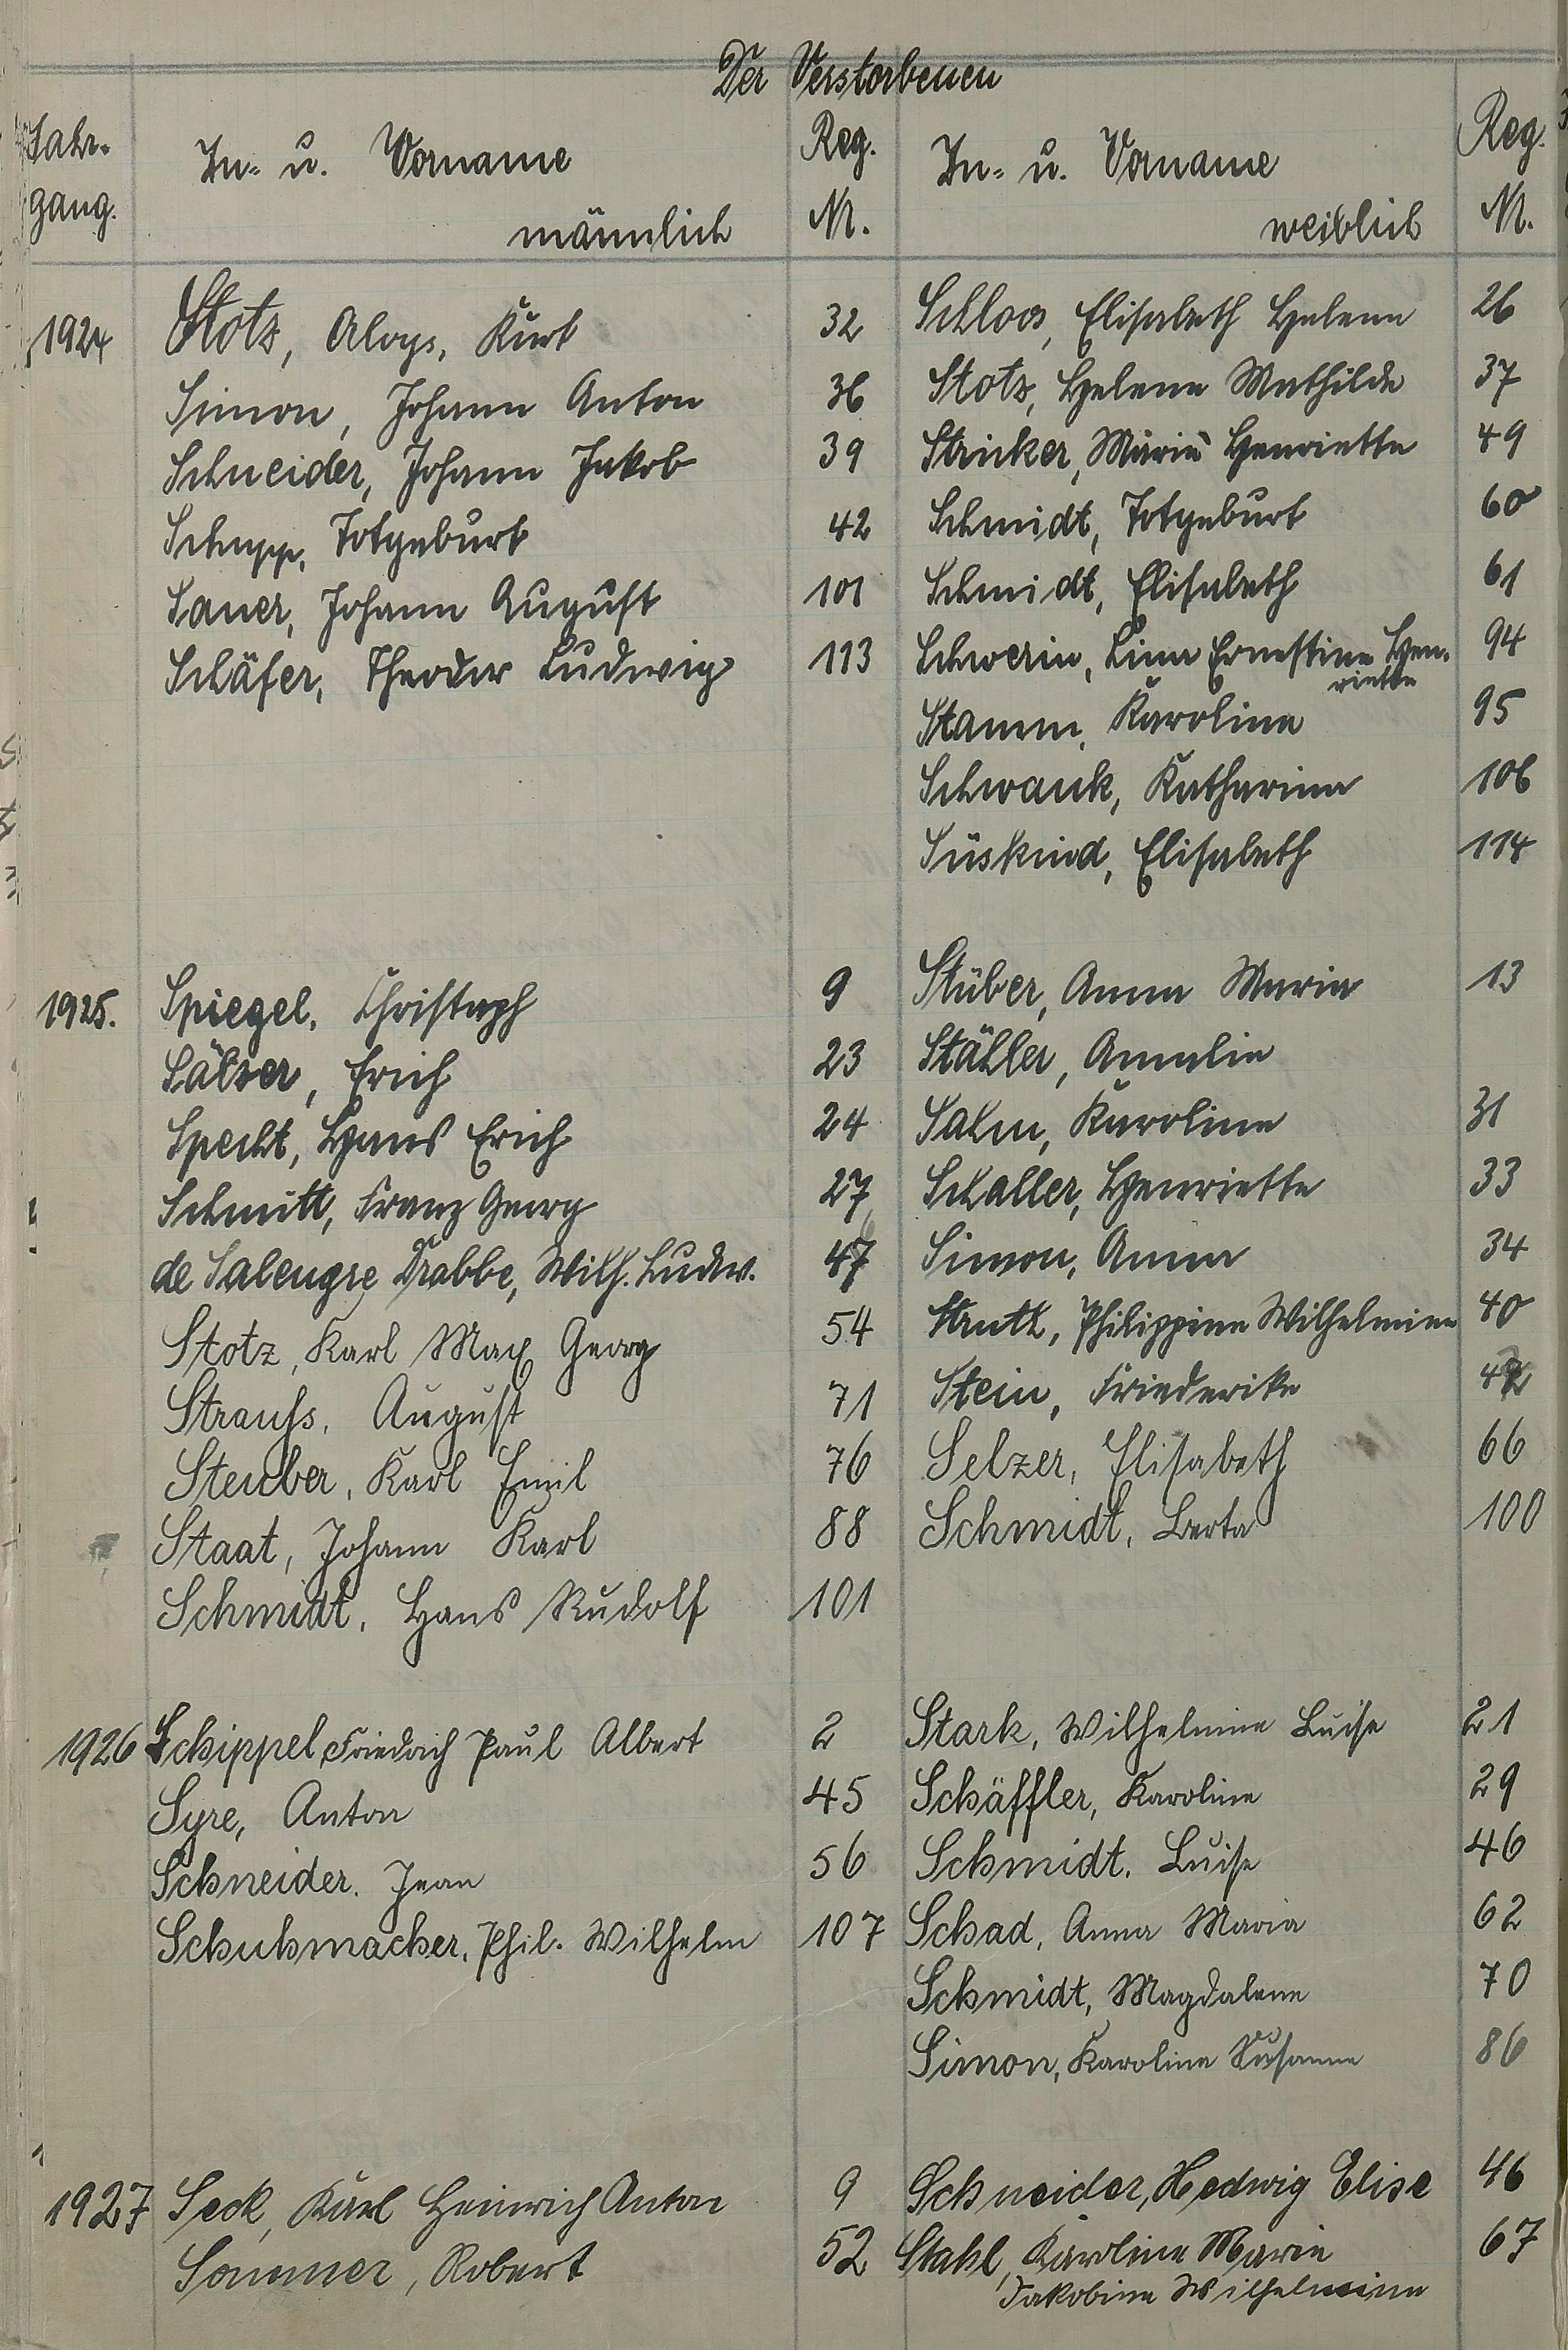 Der Verstorbenen
Jahr- In- u. Vorname Reg. In- u. Vorname Reg.
gang. männlich Nr. weiblich Nr.
1924 Stotz, Aloys, Kurt 32 Schloos, Elisabeth Helene 26
Simon, Johann Anton 36 Stotz, Helene Mathilde 37
Schneider, Johann Jakob 39 Stricker, Marie Henriette 49
Schupp, Totgeburt 42 Schmidt, Totgeburt 60
Sauer, Johann August 101 Schmidt, Elisabeth 61
Schäfer, Theodor Ludwig 113 Schwerin, Lina Ernestine Hen- 94
riette
Stamm, Karoline 95
Schwank, Katharina 106
Süskind, Elisabeth 114
1925. Spiegel, Christoph 9 Stüber, Anna Maria 13
Sälzer, Erich 23 Stähler, Amalie
Specht, Hans Erich 24 Sahm, Karoline 31
Schmitt, Franz Georg 27 Schaller, Henriette 33
de Salengre Drabbe, Wilh. Ludw. Simon, Anna 34
Stotz, Karl Max Georg 54 Struth, Philippine Wilhelmine 40
Strauss, August 71 Stein, Friederike
Steuber, Karl Emil 76 Selzer, Elisabeth 66
Staat, Johann Karl 88 Schmidt, Berta 100
Schmidt, Hans Rudolf 101
1926 Schippel, Friedrich Paul Albert 2 Stark, Wilhelmine Luise 21
Syre, Anton 45 Schäffler, Karoline 29
Schneider. Jean 56 Schmidt. Luise 46
Schuhmacher, Phil. Wilhelm 107 Schad, Anna Maria 62
Schmidt, Magdalene 70
Simon, Karoline Susanne 86
1927 Seck, Karl Heinrich Anton 9 Schneider, Hedwig Elise 46
Sommer, Robert 52 Stahl, Karoline Marie 67
Jakobine Wilhelmine